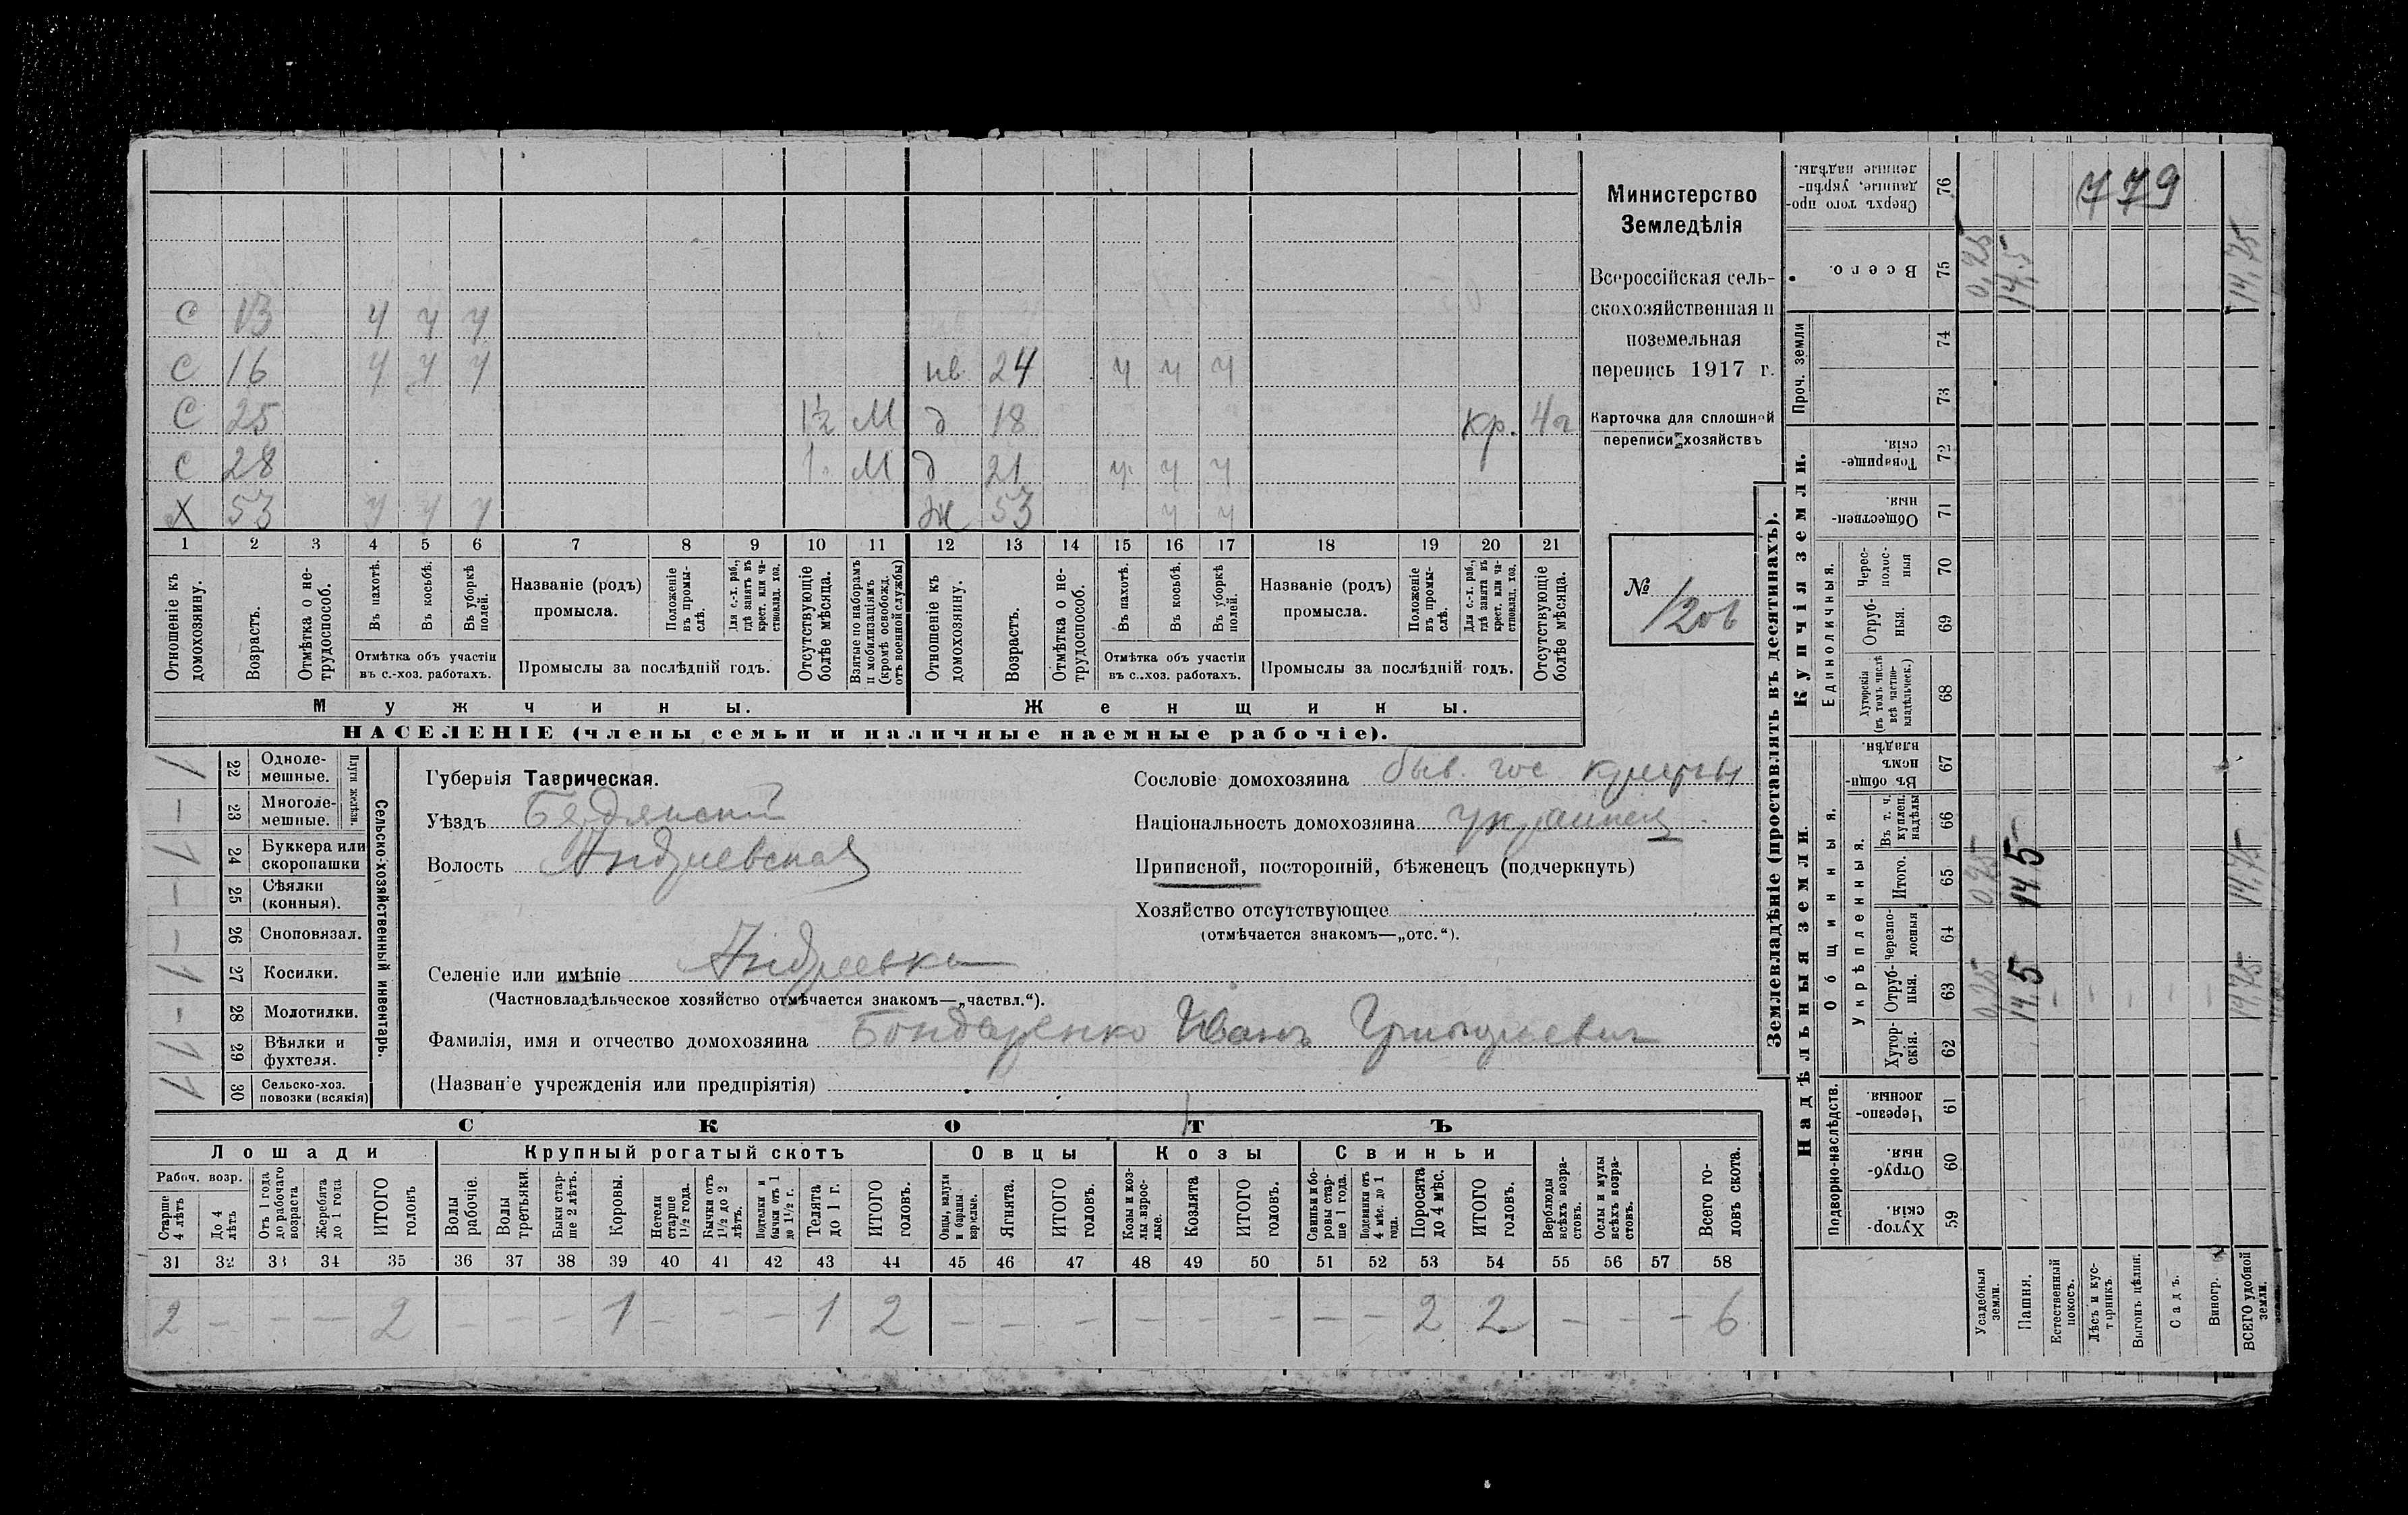 С 13 ч ч ч
С 16 ч ч ч нв. 24 ч ч ч
С 25 1½ М д 18 кр. 4 г
С 28 1 М д 21 ч ч ч
Х 53 ч ч ч ж 53 ч ч
1 2 3 4 5 6 7 8 9 10 11 12 13 14 15 16 17 18 19 20 21
Отношеніе къ домохозяину.
Возрастъ.
Отмѣтка о не-трудоспособ.
Въ пахотѣ.
Въ косьбѣ.
Въ уборкѣ полей.
Отмѣтка объ участіи
въ с.-хоз. работахъ.
Названіе (родъ)
промысла.
Положеніе въ промы-слѣ.
Для с.-х. раб., гдѣ занятъ въ крест. или ча-стновлад. хоз.
Промыслы за послѣдній годъ.
Отсутствующіе болѣе мѣсяца.
Взятые по наборамъ и мобилизаціямъ (кромѣ освобожд. отъ военной службы)
Отношеніе къ домохозяину.
Возрастъ.
Отмѣтка о не-трудоспособ.
Въ пахотѣ.
Въ косьбѣ.
Въ уборкѣ полей.
Отмѣтка объ участіи
въ с..хоз. работахъ.
Названіе (родъ)
промысла.
Положеніе въ промы-слѣ.
Для с.-х. раб., гдѣ занята въ крест. или ча-стновлад. хоз.
Промыслы за послѣдній годъ.
Отсутствующіе болѣе мѣсяца.
Мужчины. Женщины.
НАСЕЛЕНІЕ (члены семьи и наличные наемные рабочіе).
Министерство
Земледѣлія
Всероссійская сель-
скохозяйственная и
поземельная
перепись 1917 г.
Карточка для сплошной
переписи хозяйствъ
№
120б
Сельско-хозяйственный инвентарь.
Плуги желѣзн.
1 22 Одноле-мешные.
— 23 Многоле-мешные.
1 24 Буккера или скоропашки
— 25 Сѣялки (конныя).
— 26 Сноповязал.
1 27 Косилки.
- 28 Молотилки.
1 29 Вѣялки и фухтеля.
1 30 Сельско-хоз. повозки (всякія)
Губернія Таврическая.
Уѣздъ Бердянскій
Волость Андреевская
Селеніе или имѣніе Андреевка
(Частновладѣльческое хозяйство отмѣчается знакомъ—„частвл.“).
Фамилія, имя и отчество домохозяина Бондаренко Иванъ Григорьевич
(Названіе учрежденія или предпріятія)
Сословіе домохозяина быв. гос
Національность домохозяина украинец
Приписной, посторонній, бѣженецъ (подчеркнуть)
Хозяйство отсутствующее
(отмѣчается знакомъ—„отс.“).
СКОТЪ
Лошади Крупный рогатый скотъ Овцы Козы Свиньи
Рабоч. возр.
Старше 4 лѣтъ
До 4 лѣтъ
Отъ 1 года до рабочаго возраста
Жеребята до 1 года
ИТОГО головъ
Волы рабочіе.
Волы третьяки.
Быки стар-ше 2 лѣтъ.
Коровы.
Нетели старше 1½ года.
Бычки отъ 1½ до 2 лѣтъ.
Подтелки и бычки отъ 1 до 1½ г.
Телята до 1 г.
ИТОГО головъ.
Овцы, валухи и бараны взрослые.
Ягнята.
ИТОГО головъ.
Козы и коз-лы взрос-лые.
Козлята
ИТОГО головъ.
Свиньи и бо-ровы стар-ше 1 года.
Подсвинки отъ 4 мѣс. до 1 года.
Поросята до 4 мѣс.
ИТОГО головъ.
Верблюды всѣхъ возра-стовъ.
Ослы и мулы всѣхъ возра-стовъ.
Всего го-ловъ скота.
31 32 33 34 35 36 37 38 39 40 41 42 43 44 45 46 47 48 49 50 51 52 53 54 55 56 57 58
2 — — — 2 — — — 1 — — — 1 2 — — — — — — — — 2 2 — — — 6
Землевладѣніе (проставлять въ десятинахъ).
779
Сверхъ того про-данные, укрѣп-ленные надѣлы. 76
Всего. 75 0,25 14,5 14,75
Проч. земли 74 73
Купчія земли.
Товарище-скія. 72
Обществен-ныя 71
Единоличныя.
Черес-полос-ныя 70
Отруб-ныя. 69
Хуторскія (въ томъ числѣ всѣ частно-владѣльческ.) 68
Надѣльныя земли.
Общинныя.
Въ общи-номъ владѣн. 67
Укрѣпленныя.
Въ т. ч. куплен. надѣлы 66
Итого. 65 0,25 14,5 14,75
Черезпо-лосныя 64
Отруб-ныя. 63 0,25 14,5 14,75
Хутор-скія. 62
Подворно-наслѣдств.
Черезпо-лосныя. 61
Отруб-ныя. 60
Хутор-скія. 59
Усадебныя земли.
Пашня.
Естественный покосъ.
Лѣсъ и кус-тарникъ
Выгонъ цѣлин.
Садъ.
Виногр.
ВСЕГО удобной земли.